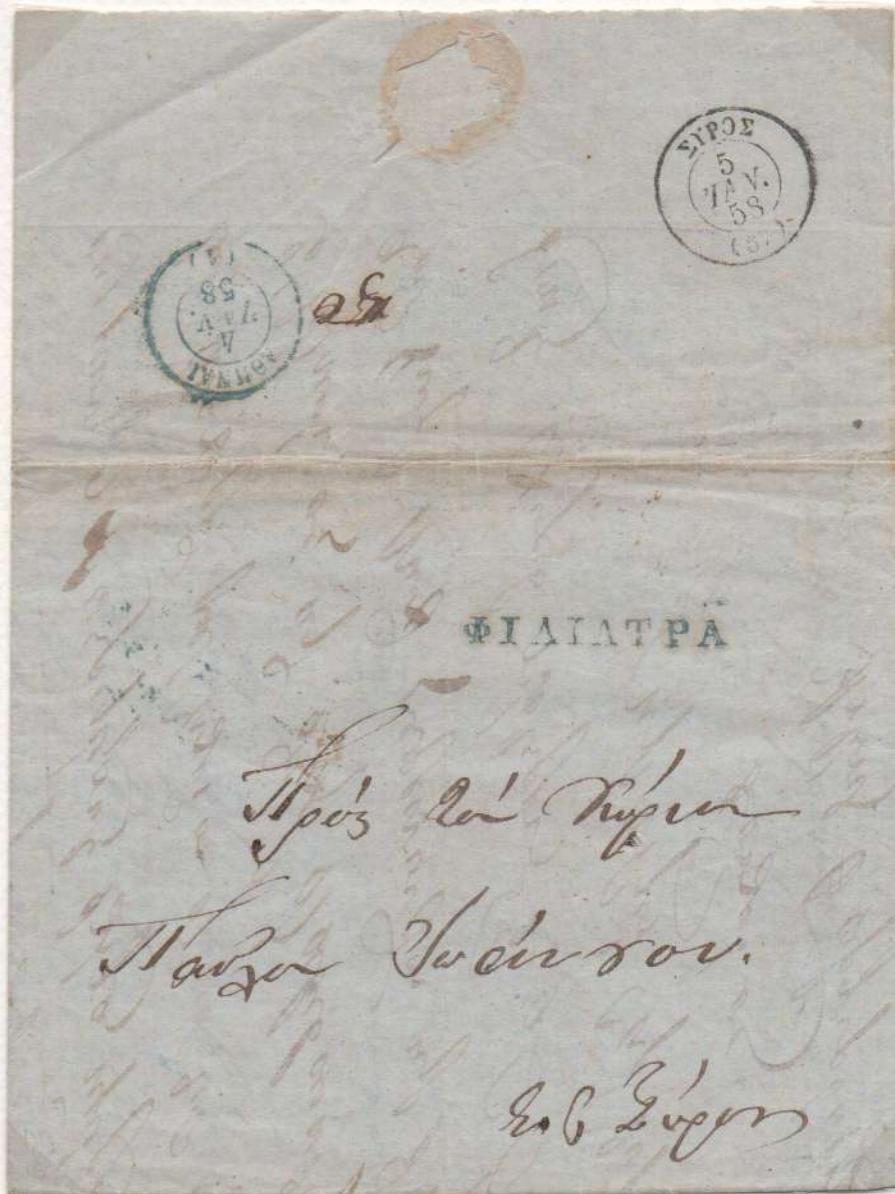 ΣΥΡΟΣ
5
ΙΑΝ.
58
(67)
ΑΘΗΝΑΙ
4
ΙΑΝ.
58
(1)
ΦΙΛΙΑΤΡΑ
Πρός τόν Κύριον
Παῦλον Ἰωάννου.
Εἰς Σύρον